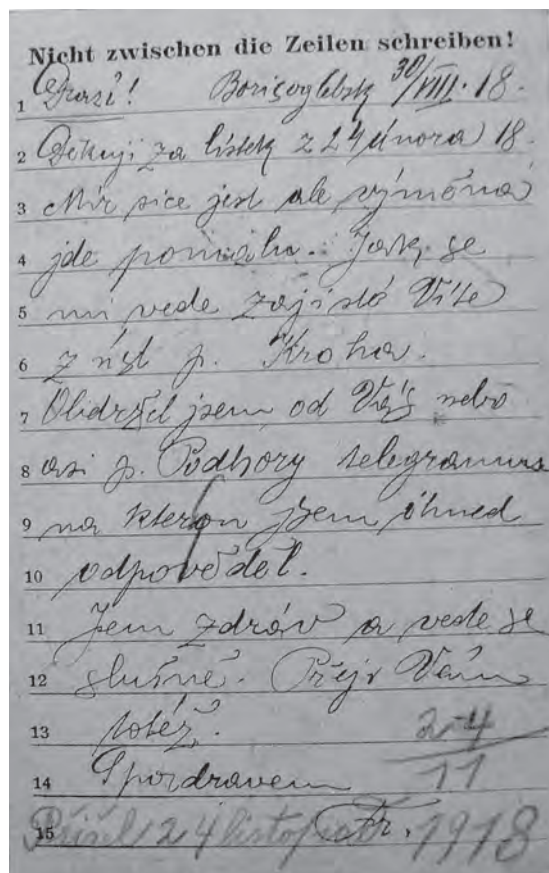 Nicht zwischen die Zeilen schreiben!
1 Drazí! Borisoglebsk 30/VIII. 18.
2 Děkuji za lístek z 24 února 18.
3 Mír sice jest ale výměna
4 jde pomalu. Jak se
5 mi vede zajisté Víte
6 z úst p. Kroha.
7 Obdržel jsem od Vás nebo
8 asi p. Podhory telegramm
9 na kterou jsem ihned
10 odpověděl.
11 Jsem zdráv a vede se
12 slušně. Přeji Vám
13 totéž. 24
14 S pozdravem 11
15 Fr.
Přišel 24 listopadu 1918